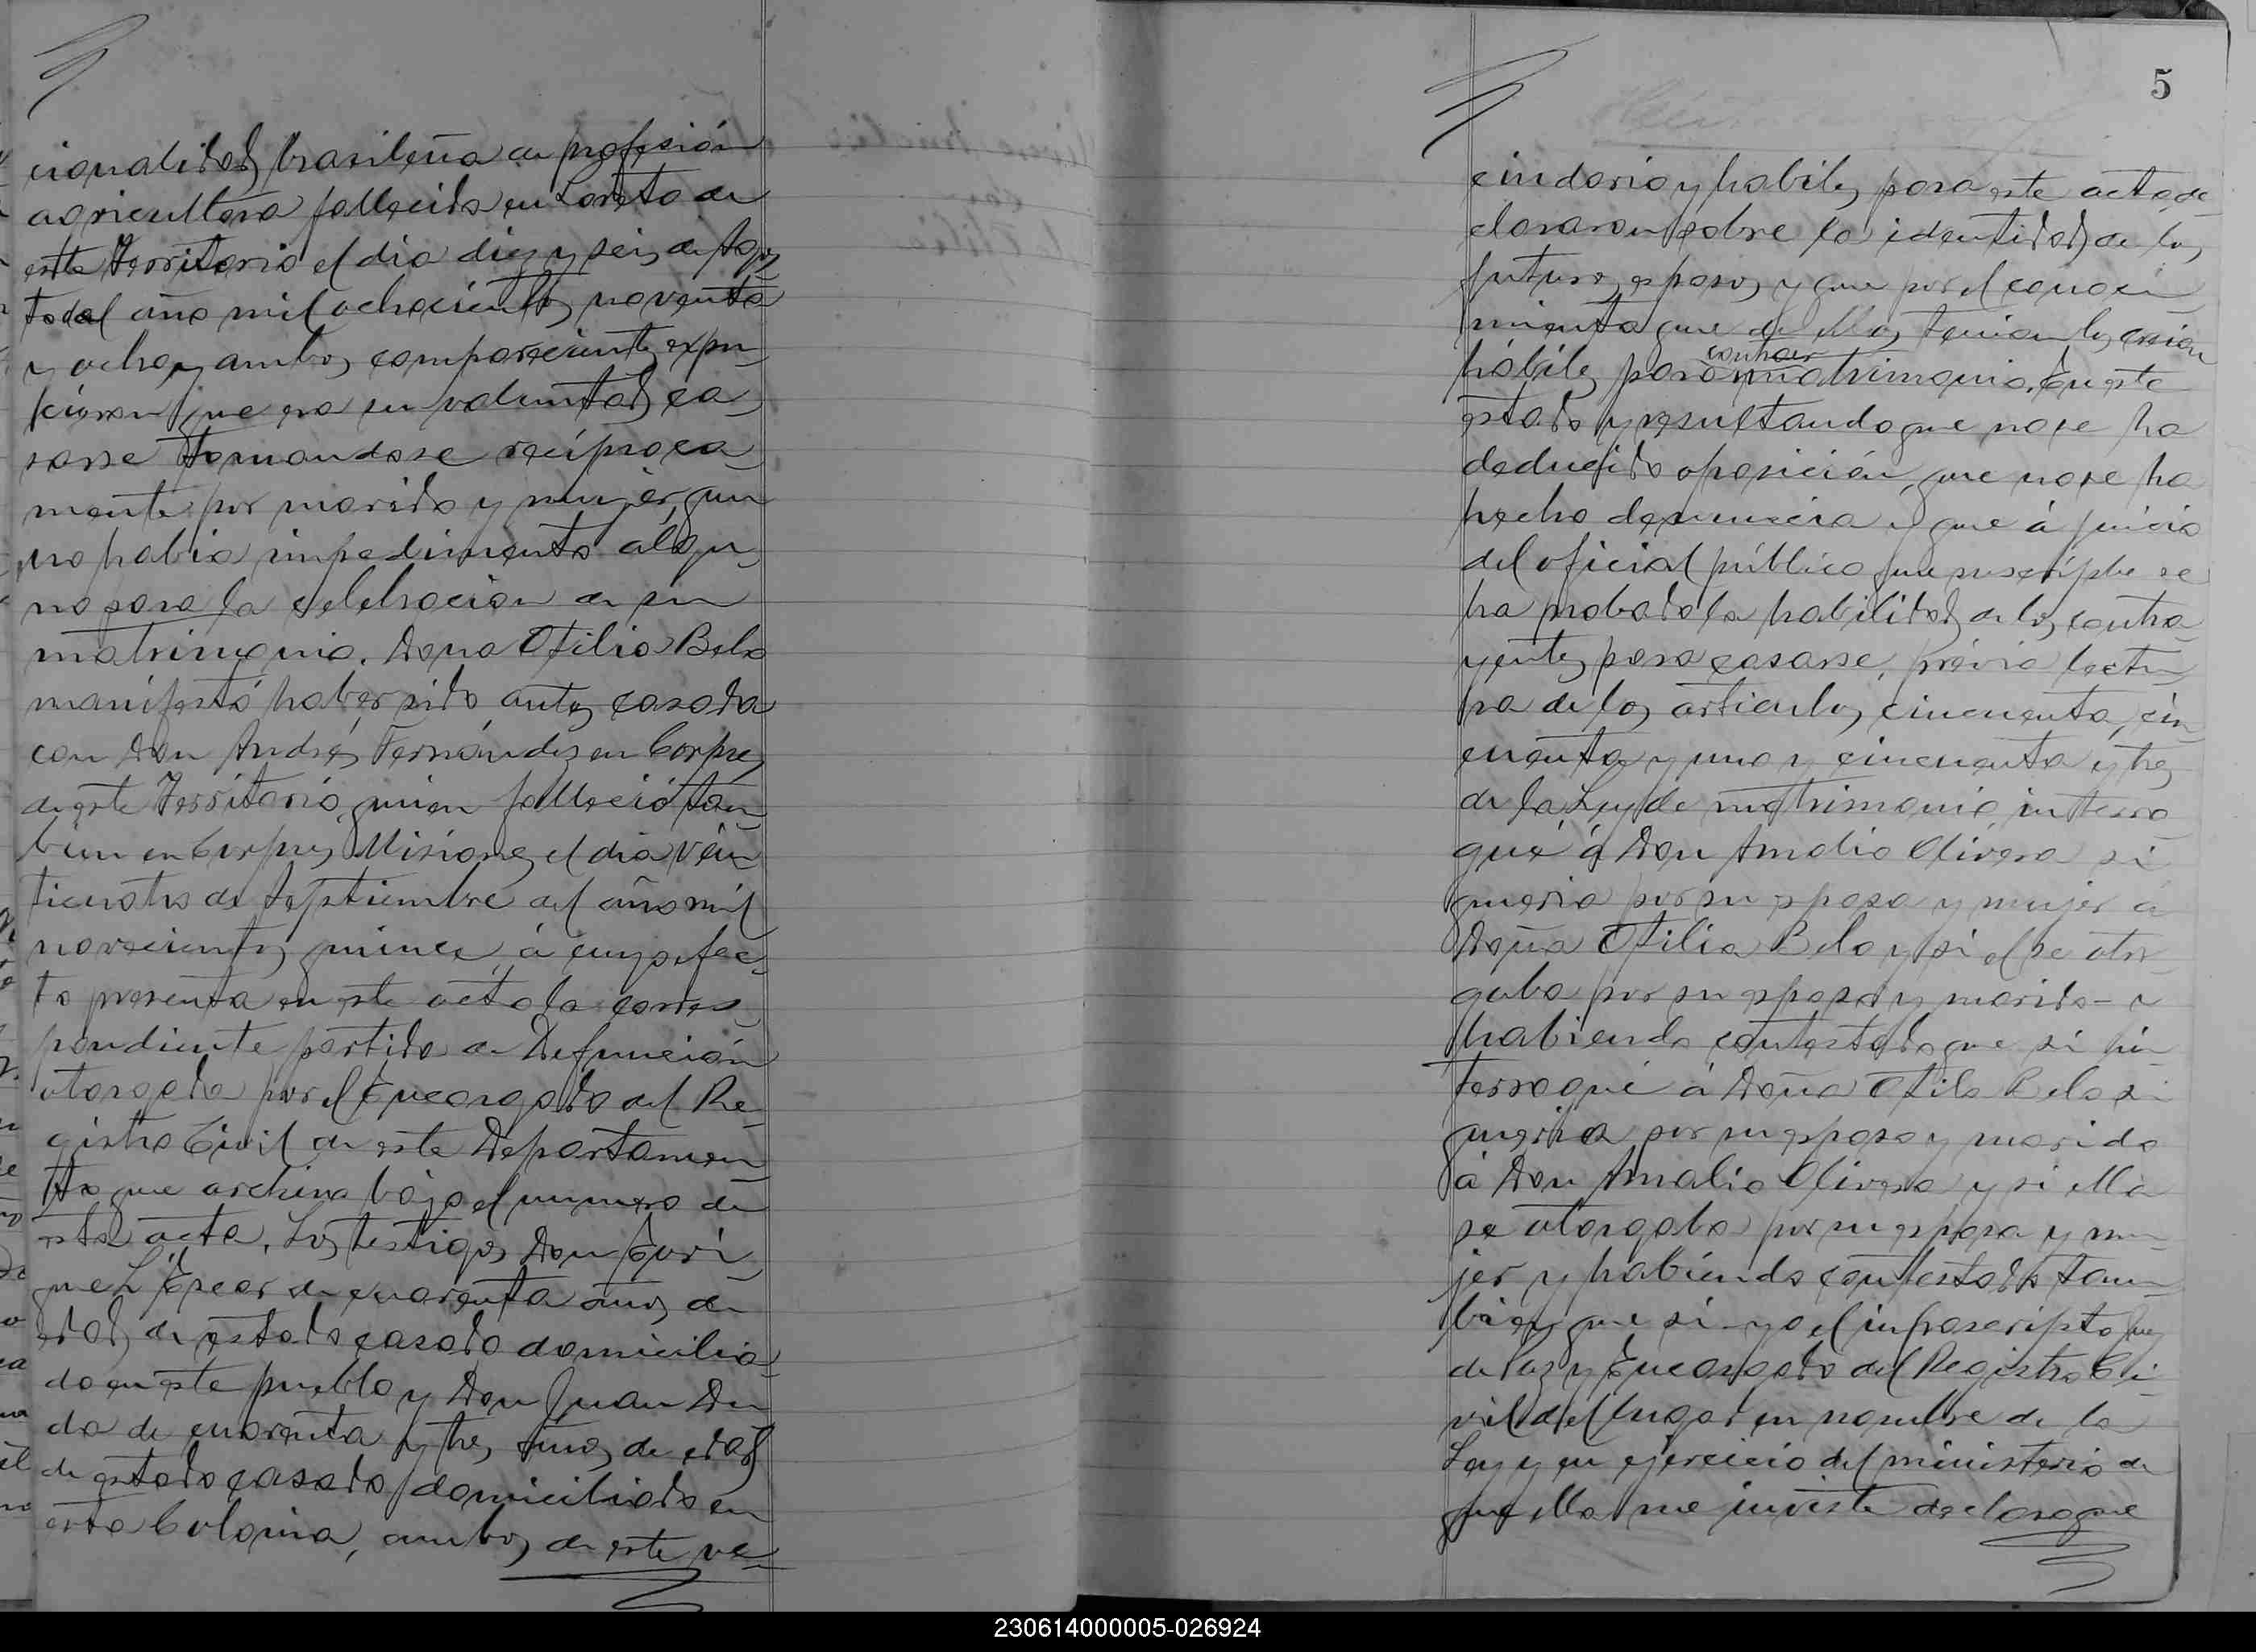 cionalidad brasileña de profesión
agricultora fallecida en Loreto de
este Territorio el dia diez y seis de Agos
to del año mil ochocientos noventa
y ocho y ambos comparecientes expu
sieron que era su voluntad ca
sarse tomandose recíproca
mente por marido y mujer, que
no habia impedimento algu
no para la celebracion de su
matrimonio. Doña Otilia Belo
manifestó haber sido antes casada
con Don Andrés Fernández en Corpus
de este Territorio, quien falleció tam
bien en Corpus Misiones el dia vein
ticuatro de Septiembre del año mil
novecientos quince, á cuyo efec
to presenta en este acto la corres
pondiente partida de Defunción
otorgada por el Encargado del Re
gistro Civil de este Departamen
to que archivo bajo el numero de
esta acta. Los testigos Don Enri
que L. de cuarenta años de
edad de estado casado domicilia
do en este pueblo y Don Juan Du
da de cuarenta y tres años de edad
de estado casado domiciliado en
esta Colonia, ambos de este ve
5
cindario y habiles para este acto, de
clararon sobre la identidad de los
futuros esposos y que por el conoci
miento que de ellos tenian los creian
contraer
hábiles para matrimonio. En este
estado y resultando que no se ha
deducido oposición, que no se ha
hecho denuncia y que á juicio
del oficial público que suscribe se
ha probado la habilidad de los contra
yentes para casarse, prévia lectu
ra de los articulos cincuenta, cin
cuenta y uno y cincuenta y tres
de la Ley de matrimonio, interro
gué á Don Amalio Olivera si
queria por su esposa y mujer á
Doña Otilia Belo y si el se otor
gaba por su esposo y marido - y
habiendo contestado que si in
terrogué á Doña Otila Belo si
queria por su esposo y marido
á Don Amalio Olivera y si ella
se otorgaba por su esposa y mu
jer y habiendo contestado tam
bien que si - yo el infrascripto Juez
de Paz y Encargado del Registro Ci
vil del lugar en nombre de la
Ley y en ejercicio del ministerio de
que ella me inviste declaro que
230614000005-026924